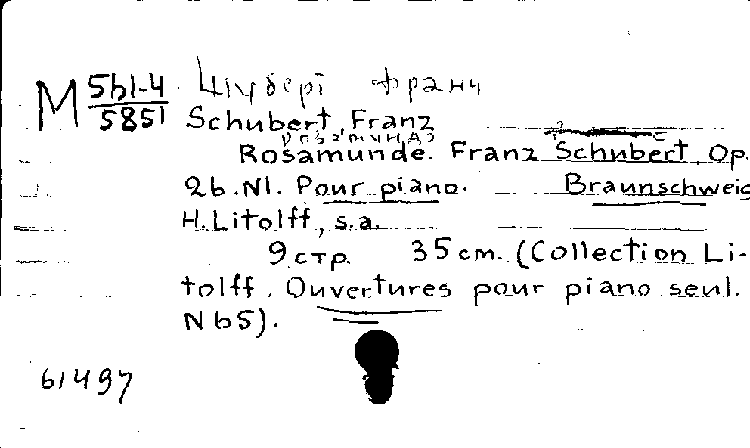 M 5bl-4 Шуберт Франц
5851 Schubert, Franz
Розамунда
Rosamunde. Franz Schubert, Op.
26. Nl. Pour piano. Braunschweig
H. Litolff, s.a.
9 стр. 35 cm. (Collection Li-
tolff. Ouvertures pour piano seul.
N 65).
61497